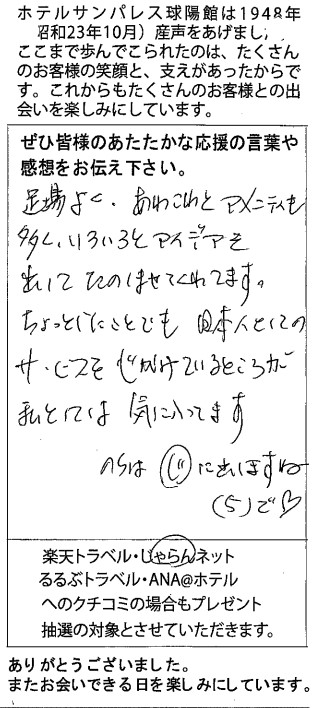 ホテルサンパレス球陽館は1948年
昭和23年10月）産声をあげまし
ここまで歩んでこられたのは、たくさん
のお客様の笑顔と、支えがあったからで
す。これからもたくさんのお客様との出
会いを楽しみにしています。
ぜひ皆様のあたたかな応援の言葉や
感想をお伝え下さい。
足場よく、あれこれとアメニティも
多く、いろいろとアイデアを
出して たのしませてくれてます。
ちょっとしたことでも 日本人としての
サービスを 心がけているところが
私としては 気に入ってます
のちは (じ) に出しますね
(5)で♡
楽天トラベル・じゃらんネット
るるぶトラベル・ANA@ホテル
へのクチコミの場合もプレゼント
抽選の対象とさせていただきます。
ありがとうございました。
またお会いできる日を楽しみにしています。